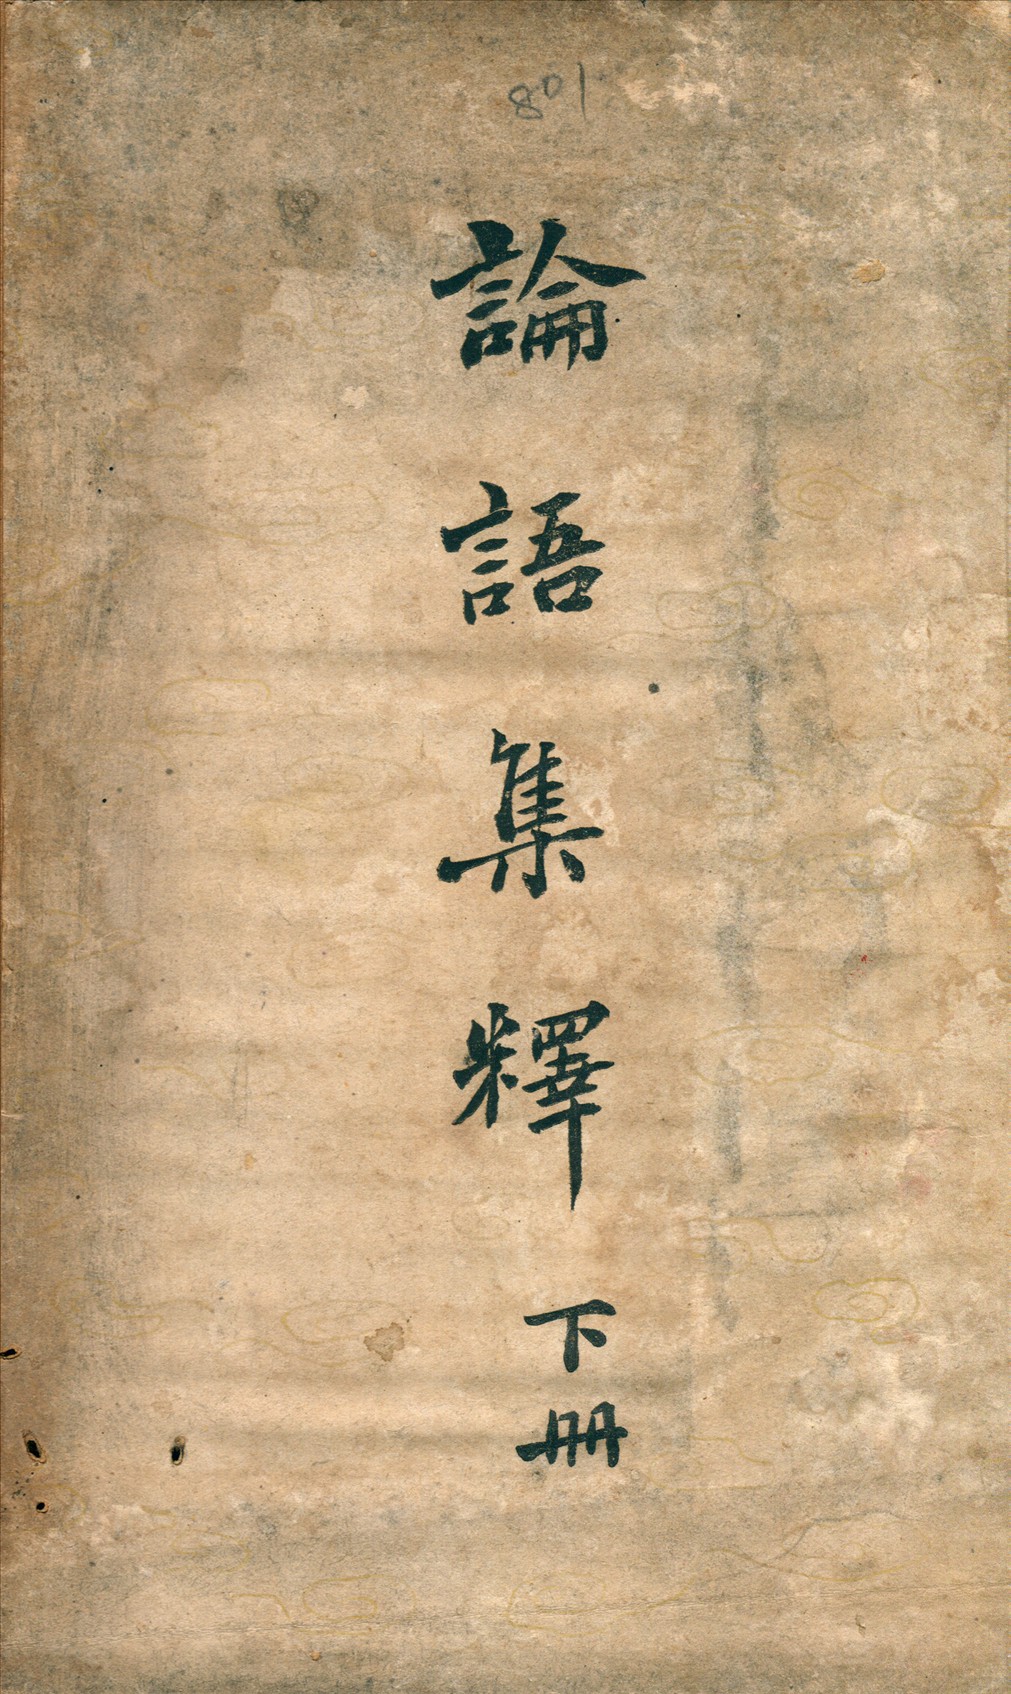 801
論語集釋
下冊